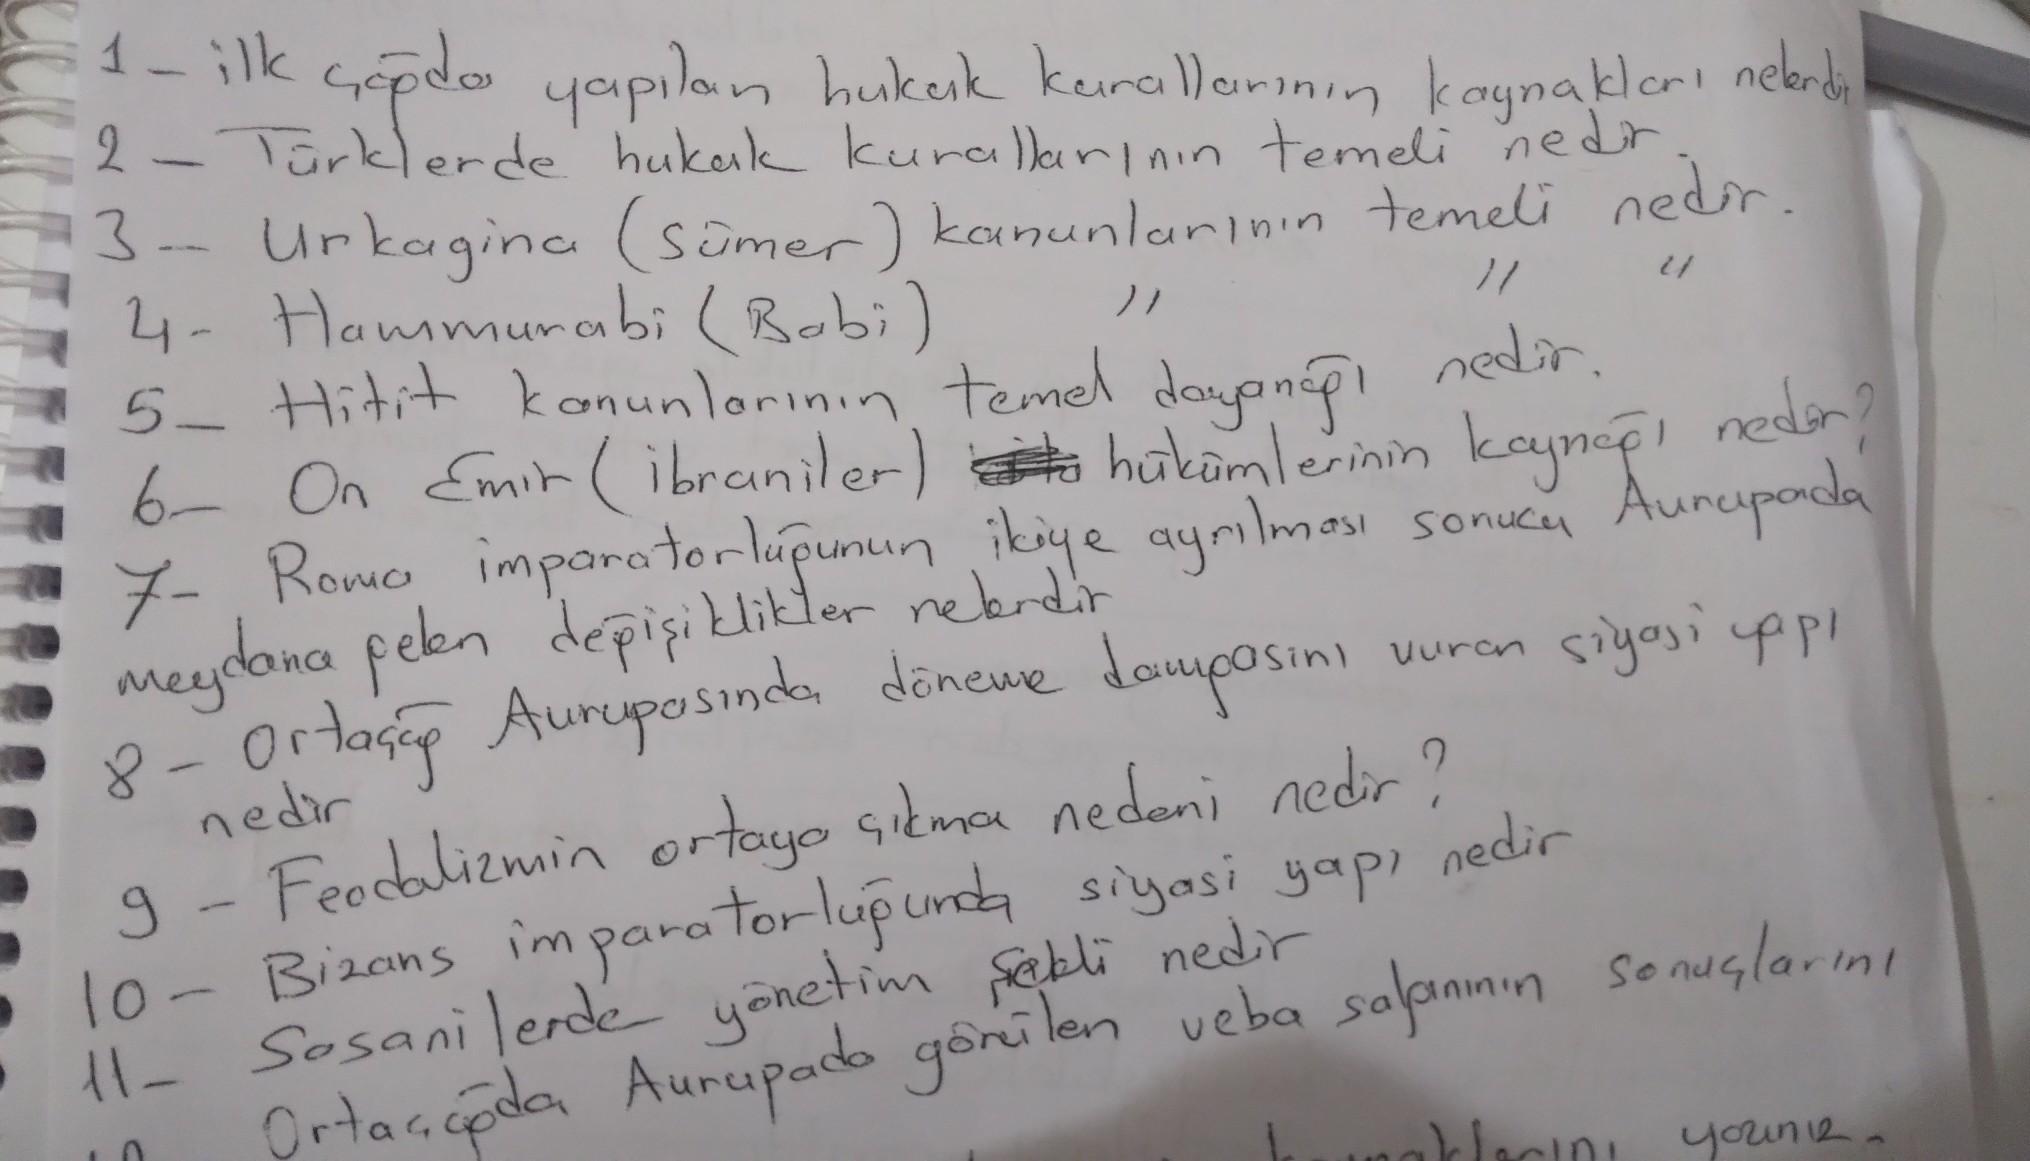 1 - ilk çağda yapılan hukuk kurallarının kaynakları nelerdir
2 - Türklerde hukuk kurallarının temeli nedir.
3 - Urkagina (Sümer) kanunlarının temeli nedir.
4 - Hammurabi (Babi) " " "
5 - Hitit kanunlarının temel dayanağı nedir.
6 - On Emir (ibraniler) hükümlerinin kaynağı nedir?
7 - Roma imparatorluğunun ikiye ayrılması sonucu Avrupada
meydana gelen değişiklikler nelerdir
8 - Ortaçağ Avrupasında döneme damgasını vuran siyasi yapı
nedir
9 - Feodalizmin ortaya çıkma nedeni nedir?
10 - Bizans imparatorluğunda siyasi yapı nedir
11 - Sasanilerde yönetim şekli nedir
Ortaçağda Avrupada görülen veba salgınının sonuçlarını
yazınız.